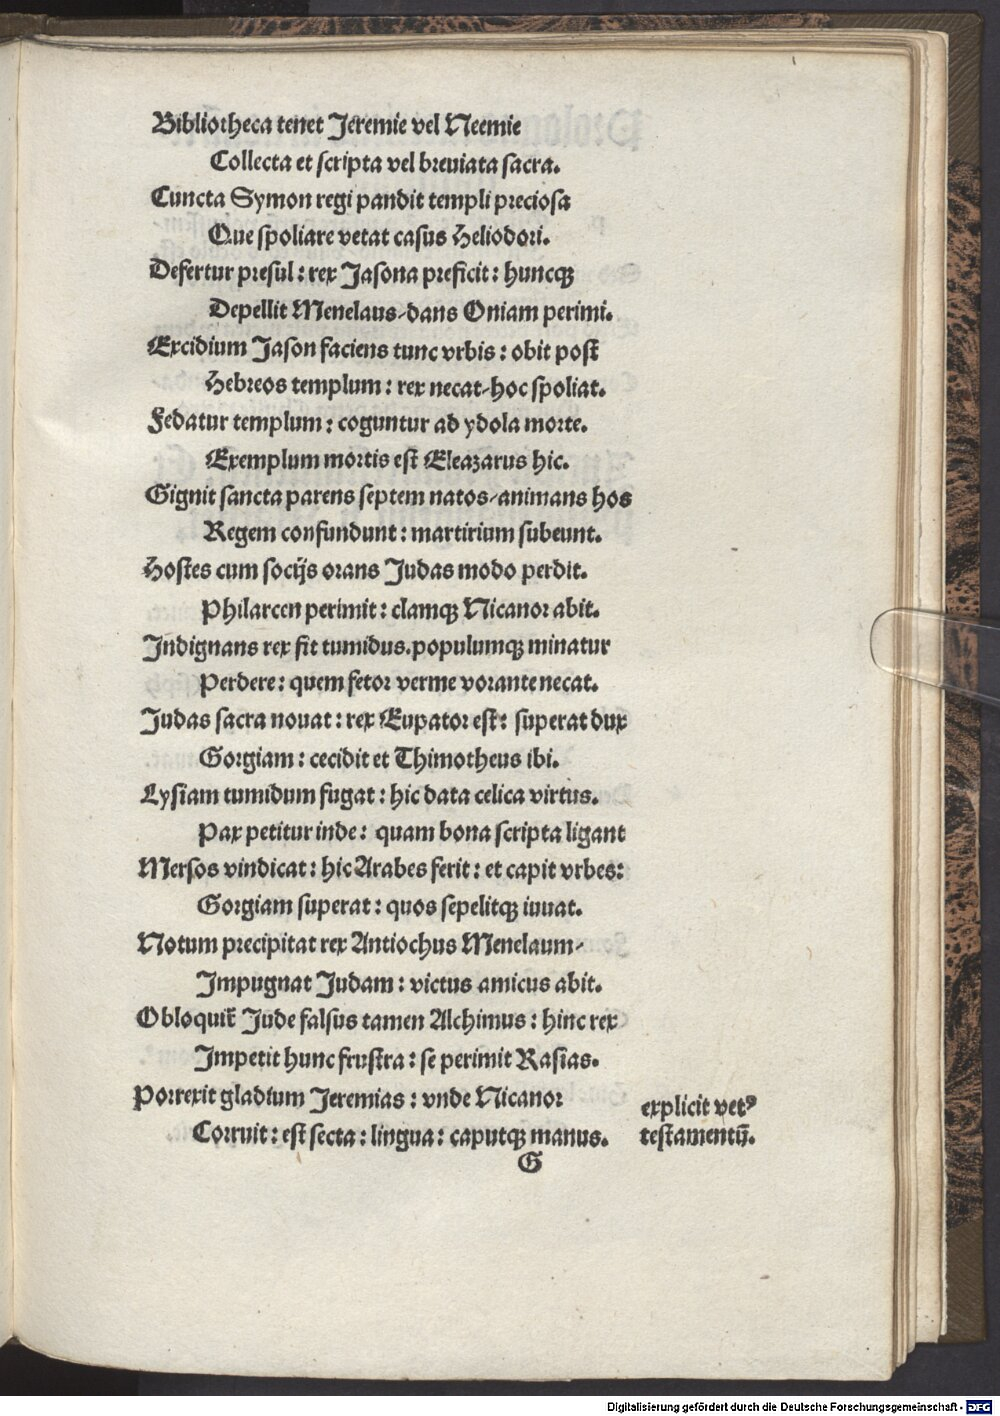 Bibliotheca tenet Jeremie vel Neemie
Collecta et scripta vel breuiata sacra.
Cuncta Symon regi pandit templi preciosa
Que spoliare vetat casus Heliodori.
Defertur presul: rex Jasona preficit: huncqꝫ
Depellit Menelaus/dans Oniam perimi.
Excidium Jason faciens tunc vrbis: obit post
Hebreos templum: rex necat/hoc spoliat.
Fedatur templum: coguntur ad ydola morte.
Exemplum mortis est Eleazarus hic.
Gignit sancta parens septem natos/animans hos
Regem confundunt: martirium subeunt.
Hostes cum socijs orans Judas modo perdit.
Philarcen perimit: clamqꝫ Nicanor abit.
Indignans rex fit tumidus.populumqꝫ minatur
Perdere: quem fetor verme vorante necat.
Judas sacra nouat: rex Eupator est: superat dux
Gorgiam: cecidit et Thimotheus ibi.
Lysiam tumidum fugat: hic data celica virtus.
Pax petitur inde: quam bona scripta ligant
Mersos vindicat: hic Arabes ferit: et capit vrbes:
Gorgiam superat: quos sepelitqꝫ iuuat.
Notum precipitat rex Antiochus Menelaum/
Impugnat Judam: victus amicus abit.
Obloquit̃ Jude falsus tamen Alchimus: hinc rex
Impetit hunc frustra: se perimit Rasias.
Porrexit gladium Jeremias: vnde Nicanor
Corruit: est secta: lingua: caputqꝫ manus.
explicit vetꝰ
testamentū.
G
Digitalisierung gefördert durch die Deutsche Forschungsgemeinschaft - DFG